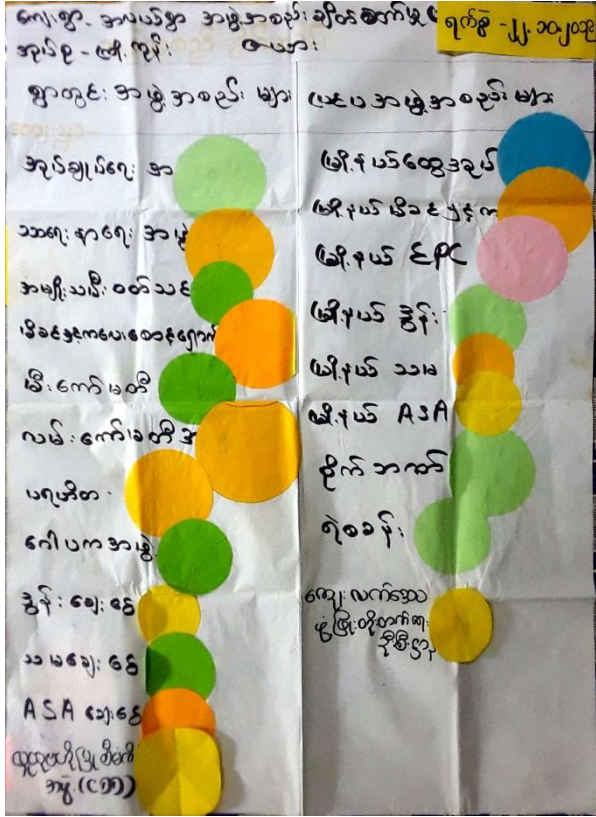 ကျေးရွာ - အလယ်ရွာ အဖွဲ့အစည်း ချိတ်ဆက်မှု
ရက်စွဲ - ၂၂.၁၀.၂၀၁၉
အုပ်စု - ကြို့ကုန်း
ရွာတွင်း အဖွဲ့အစည်း များ
အုပ်ချုပ်ရေး အ
သာရေး နာရေး အဖွဲ့
အမျိုးသမီး ဝတ်သင်
မိခင်နှင့်ကလေးစောင့်ရှောက်
မီးကော်မတီ
လမ်းကော်မတီအ
ပရဟိတ
ဂေါပကအဖွဲ့
ဒွန်း ချေးငွေ
သမချေးငွေ
ASA ချေးငွေ
အဖွဲ့ (CDD)
ပြင်ပအဖွဲ့အစည်း များ
မြို့နယ်ထွေအုပ်
မြို့နယ် မိခင်နှင့်က
မြို့နယ် EPC
မြို့နယ် ဒွန်း
မြို့နယ် သမ
မြို့နယ် ASA
စိုက်ဘဏ်
ရဲစခန်း
ကျေးလက်ဒေသ
ဖွံ့ဖြိုးတိုးတက်ရေး
ဦးစီးဌာန